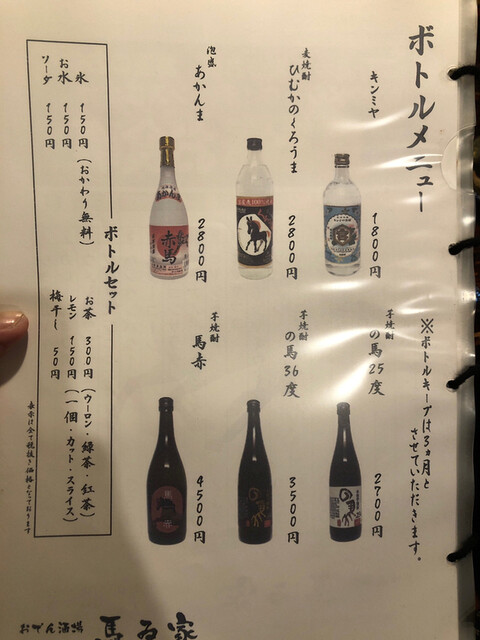 ボトルメニュー
※ボトルキープは3ヵ月と
させていただきます。
キンミヤ
1800円
麦焼酎
ひむかのくろうま
2800円
泡盛
あかんま
2800円
芋焼酎
の馬25度
2700円
芋焼酎
の馬36度
3500円
芋焼酎
馬赤
4500円
ボトルセット
氷 150円(おかわり無料)
お水 150円
ソーダ 150円
お茶 300円(ウーロン・緑茶・紅茶)
レモン 150円(一個・カット・スライス)
梅干し 50円
表示は全て税抜き価格となっております
おでん酒場 馬る家